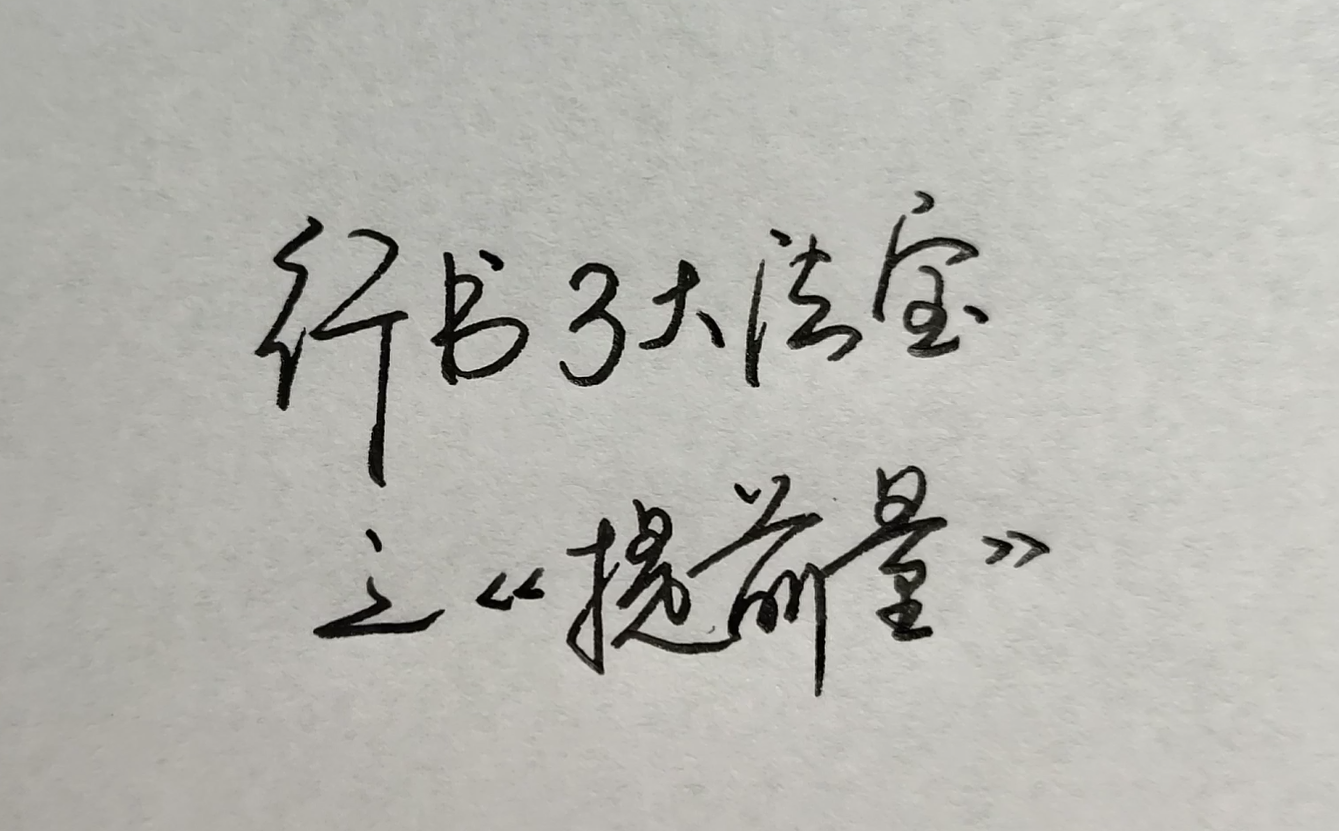 行书3大法宝
之《提前量》